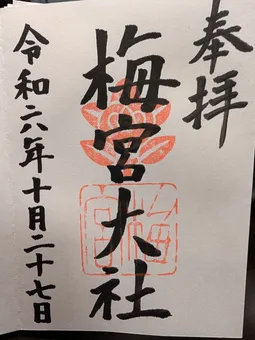 奉拝
梅宮大社
令和六年十月二十七日
梅宮